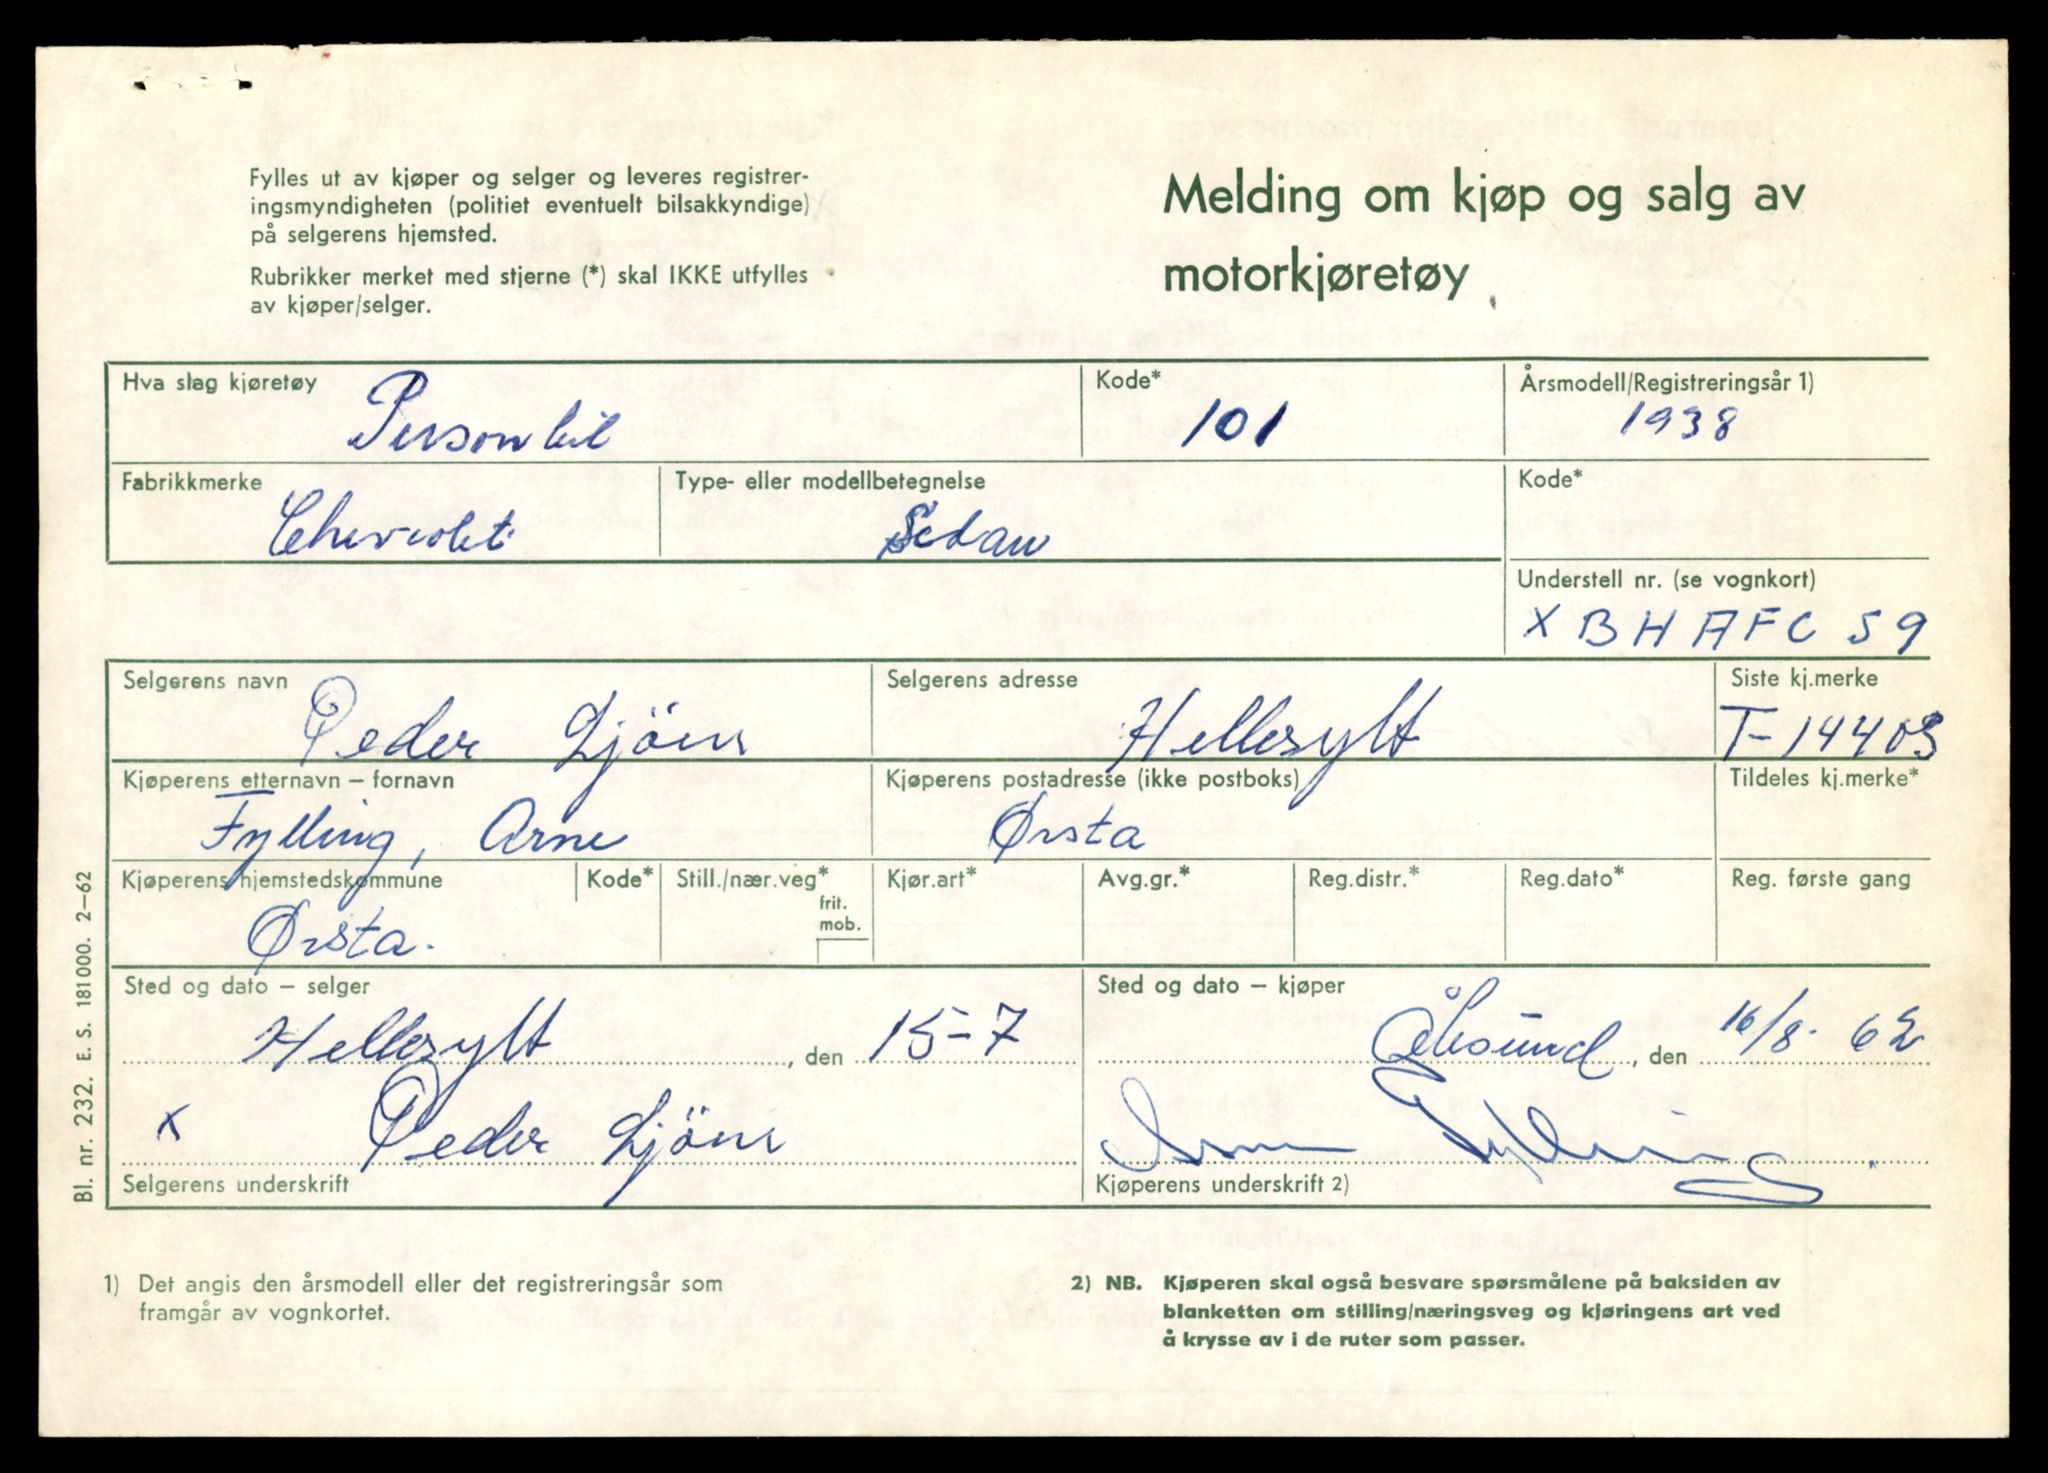 Fylles ut av kjøper og selger og leveres registrer-
ingsmyndigheten (politiet eventuelt bilsakkyndige)
på selgerens hjemsted.
Rubrikker merket med stjerne (*) skal IKKE utfylles
av kjøper/selger.
Melding om kjøp og salg av
motorkjøretøy
Hva slag kjøretøy
Personbil
Kode*
101
Årsmodell/Registreringsår 1)
1938
Fabrikkmerke
Chevrolet
Type- eller modellbetegnelse
Sedan
Kode*
Understell nr. (se vognkort)
X BHAFC 59
Selgerens navn
Peder Ljöen
Selgerens adresse
Hellesylt
Siste kj.merke
T-14403
Kjøperens etternavn – fornavn
Fylling, Arne
Kjøperens postadresse (ikke postboks)
Ørsta
Tildeles kj.merke*
Kjøperens hjemstedskommune
Ørsta.
Kode*
Still./nær.veg*
frit.
mob.
Kjør.art*
Avg.gr.*
Reg.distr.*
Reg.dato*
Reg. første gang
Sted og dato – selger
Hellesylt, den 15-7
Sted og dato – kjøper
Ålesund, den 16/8. 62
x Peder Ljöen
Selgerens underskrift
Arne Fylling
Kjøperens underskrift 2)
Bl. nr. 232. E. S. 181000. 2–62
1) Det angis den årsmodell eller det registreringsår som
framgår av vognkortet.
2) NB. Kjøperen skal også besvare spørsmålene på baksiden av
blanketten om stilling/næringsveg og kjøringens art ved
å krysse av i de ruter som passer.